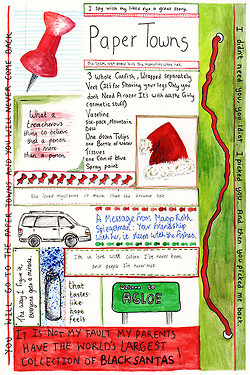 I spy with my liked eye a great story.
PAPER TOWNS
The town was paper but the memories were not.
3 Whole Catfish, Wrapped Separately
Veet (It's for Shaving your legs Only you
dont Need A razor It's with all the Girly
cosmetic stuff)
Vaseline
Six-pack, Mountain
Dew
One dozen Tulips
one Bottle of water
Tissues
one Can of blue
Spray paint
What a
treacherous
thing to believe
that a person
is more
than a person
She loved mysteries so much that she became one
A Message from Margo Roth
Spiegelman: Your friendship
with her, it sleeps with the fishes.
I'm in love with cities I've never been
and people I've never met
The way I figure it,
everyone gets a miracle.
that
tastes
like
hope
feels
Welcome to
AGLOE
IT IS NOT MY FAULT MY PARENTS
HAVE THE WORLD'S LARGEST
COLLECTION OF BLACK SANTAS!
YOU WILL GO TO THE PAPER TOWNS AND YOU WILL NEVER COME BACK
I didn't need you, you idiot. I picked you. And then you picked me back.